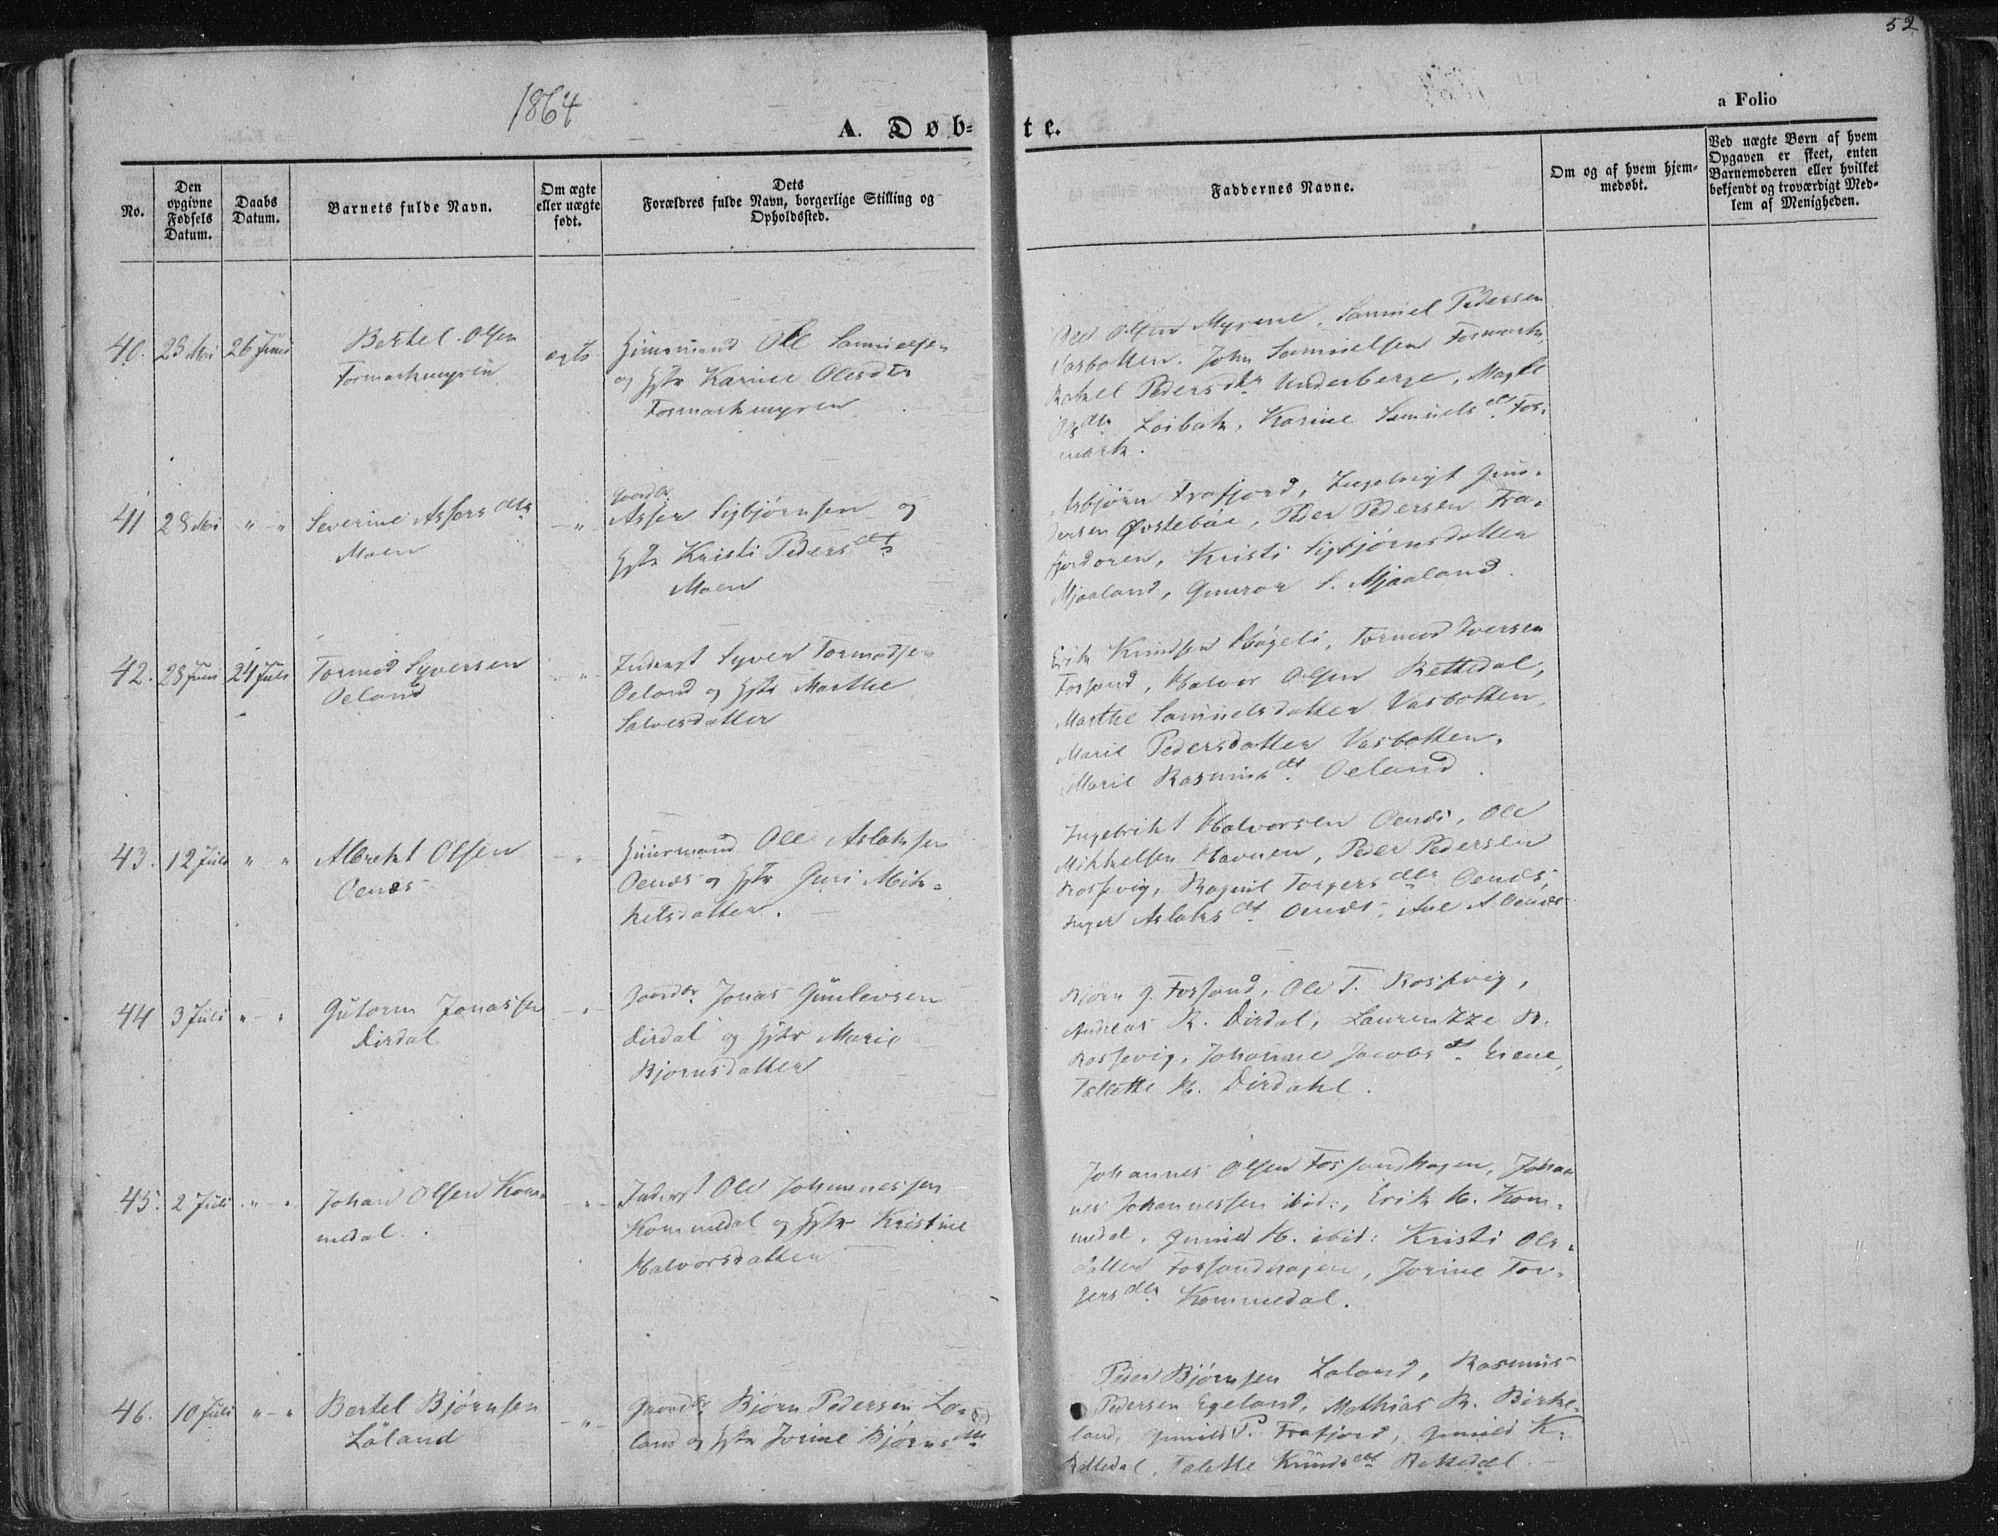 52
1864
a Folio
A. Døb-
te.
No.
Den opgivne Fødsels Datum.
Daabs Datum.
Barnets fulde Navn.
Om ægte eller uægte født.
Dets Forældres fulde Navn, borgerlige Stilling og Opholdssted.
Faddernes Navne.
Om og af hvem hjem-
medøbt.
Ved uægte Børn af hvem
Opgaven er skeet, enten
Barnemoderen eller hvilket
bekjendt og troværdigt Med-
lem af Menigheden.
40. 23 Mai 26 Juni
Bertel Olsen
Formarkmyren
ægte
Huusmand Ole Samuelsen
og Hstr Karine Olesdtr
Fosmarkmyren
Ole Olsen Myrene, Samuel Pedersen
Vasbotten. John Samuelsen Fosmark,
Rakel Pedersdtr Underberge, Magle
dtr Loibak, Karine Samuelsdt Fos-
mark.
41 28 Mai " - "
Severine Assersdtr
Moen
- " -
Gaardbr
Asser Sigbjørnsen og
Hstr Kristi Pedersdt
Moen
Asbjørn Frafjord, Ingebrigt Gun-
dersen Øvstebøe, Peder Pedersen Fra-
fjordoren, Kristi Sigbjørnsdatter
Mjaaland, Gunvor S. Mjaaland.
42. 28 Juni 24 Juli
Tormod Syversen
Oeland
- " -
Inderst Syver Tormodsen
Oeland og Hstr Marthe
Salvesdatter
Erik Knudsen Høgeli, Tormod Iversen
Fossand, Halvor Olsen Rettedal,
Marthe Samuelsdatter Vasbotten,
Marie Pedersdatter Vasbotten.
Marie Rasmusdt. Oeland.
43. 12 Juli " "
Albrekt Olsen
Oenæs
- " -
Huusmand Ole Aslaksen
Oenæs og Hstr Guri Mik-
kelsdatter.
Ingebrikt Halvorsen Oenæs, Ole
Mikkelsen Havnen, Peder Pedersen
Rossevig, Ragnil Torgersdtr. Oenæs,
Inger Aslaksdt Oenæs, Ane A Oenæs
44 3 Juli " - "
Gutorm Jonassen
Dirdal
- " -
Gaardbr. Jonas Gunlevsen
Dirdal og Hstr Marie
Bjørnsdatter
Bjørn G. Fossand, Ole T. Rossevig,
Andreas R. Dirdal, Laurentze R.
Rossevig, Johanne Jacobsdt. Eiene,
Tallette H. Dirdahl.
45. 2 Juli " - "
Johan Olsen Kom-
medal.
- " -
Inderst Ole Johannessen
Kommedal og Hstr Kristine
Halvorsdatter
Johannes Olsen Fossandhagen, Johan
nes Johannessen ibid:, Erik H. Kom-
medal, Gunild H. ibid: Kristi Ols-
datter Fossandhagen, Jorine Tor-
gersdtr Kommedal.
46. 10 Juli " - "
Bertel Bjørnsen
Løland
- " -
Gaardbr. Bjørn Pedersen Lø-
land og Hstr Jorine Bjørnsdtr
Peder Bjørnsen Løland, Rasmus
Pedersen Egeland, Mathias R. Birke-
land, Gunild P. Frafjord, Gunild K.
Rettedal, Talette Knudsdt Rettedal.